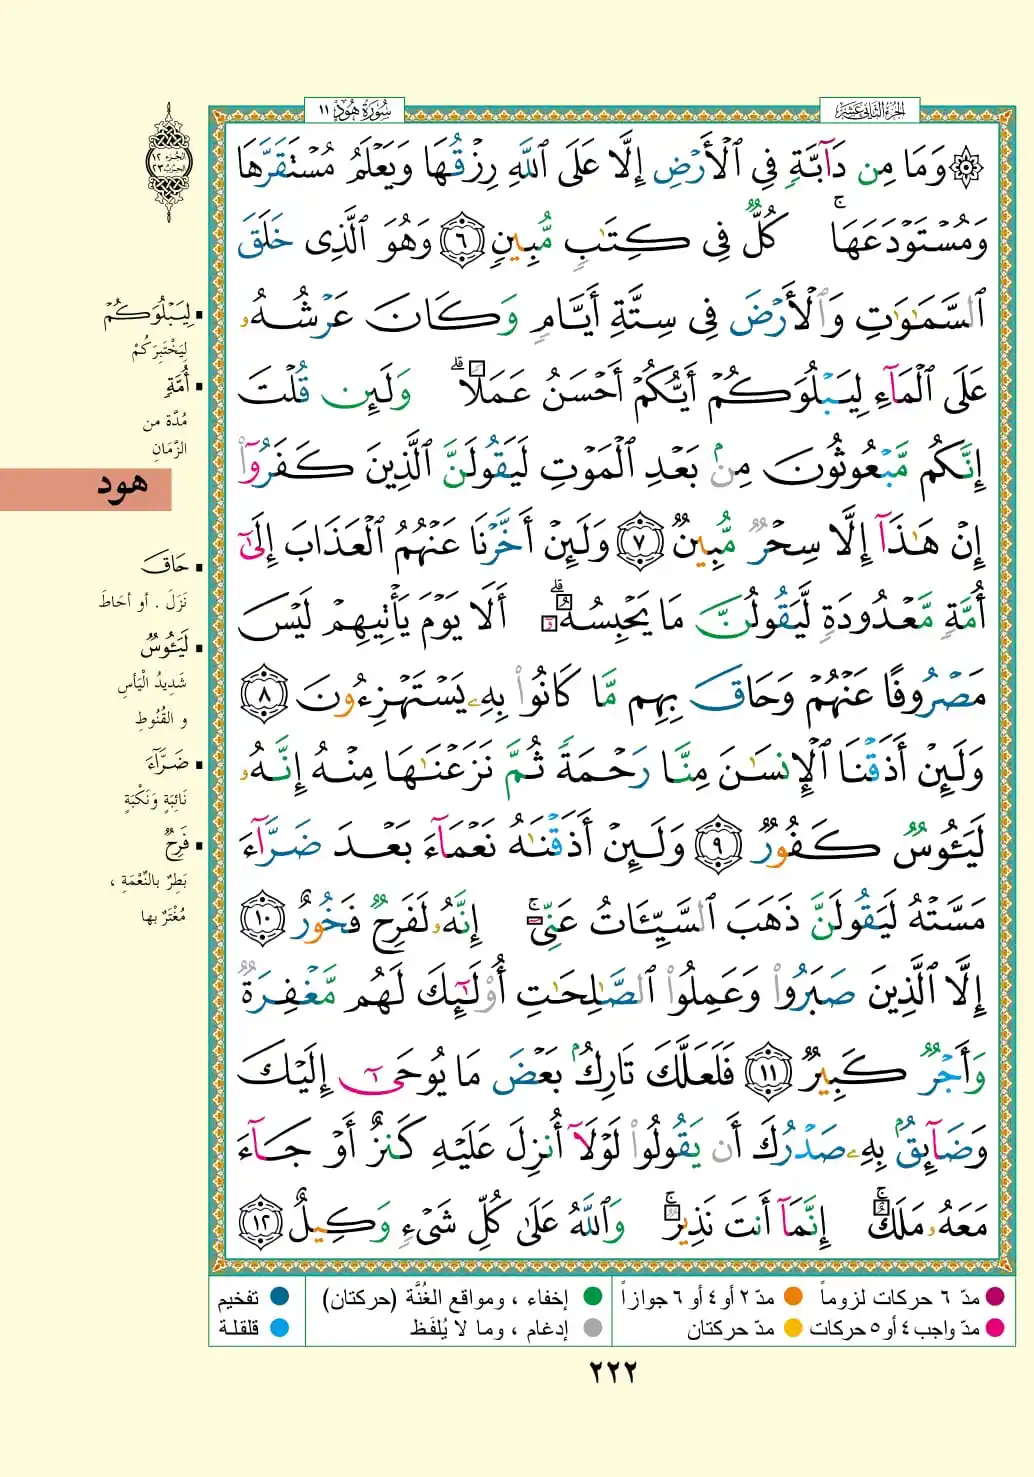 سُورَةُ هُودٍ ١١
الجُزءُ الثَّانِي عَشَرَ
۞ وَمَا مِن دَآبَّةٍ فِى ٱلْأَرْضِ إِلَّا عَلَى ٱللَّهِ رِزْقُهَا وَيَعْلَمُ مُسْتَقَرَّهَا
وَمُسْتَوْدَعَهَا ۚ كُلٌّ فِى كِتَٰبٍ مُّبِينٍ ٦ وَهُوَ ٱلَّذِى خَلَقَ
ٱلسَّمَٰوَٰتِ وَٱلْأَرْضَ فِى سِتَّةِ أَيَّامٍ وَكَانَ عَرْشُهُۥ
عَلَى ٱلْمَآءِ لِيَبْلُوَكُمْ أَيُّكُمْ أَحْسَنُ عَمَلًا ۗ وَلَئِن قُلْتَ
إِنَّكُم مَّبْعُوثُونَ مِنۢ بَعْدِ ٱلْمَوْتِ لَيَقُولَنَّ ٱلَّذِينَ كَفَرُوٓا۟
إِنْ هَٰذَآ إِلَّا سِحْرٌ مُّبِينٌ ٧ وَلَئِنْ أَخَّرْنَا عَنْهُمُ ٱلْعَذَابَ إِلَىٰٓ
أُمَّةٍ مَّعْدُودَةٍ لَّيَقُولُنَّ مَا يَحْبِسُهُۥٓ ۗ أَلَا يَوْمَ يَأْتِيهِمْ لَيْسَ
مَصْرُوفًا عَنْهُمْ وَحَاقَ بِهِم مَّا كَانُوا۟ بِهِۦ يَسْتَهْزِءُونَ ٨
وَلَئِنْ أَذَقْنَا ٱلْإِنسَٰنَ مِنَّا رَحْمَةً ثُمَّ نَزَعْنَٰهَا مِنْهُ إِنَّهُۥ
لَيَـُٔوسٌ كَفُورٌ ٩ وَلَئِنْ أَذَقْنَٰهُ نَعْمَآءَ بَعْدَ ضَرَّآءَ
مَسَّتْهُ لَيَقُولَنَّ ذَهَبَ ٱلسَّيِّـَٔاتُ عَنِّىٓ ۚ إِنَّهُۥ لَفَرِحٌ فَخُورٌ ١٠
إِلَّا ٱلَّذِينَ صَبَرُوا۟ وَعَمِلُوا۟ ٱلصَّٰلِحَٰتِ أُو۟لَٰٓئِكَ لَهُم مَّغْفِرَةٌ
وَأَجْرٌ كَبِيرٌ ١١ فَلَعَلَّكَ تَارِكٌۢ بَعْضَ مَا يُوحَىٰٓ إِلَيْكَ
وَضَآئِقٌۢ بِهِۦ صَدْرُكَ أَن يَقُولُوا۟ لَوْلَآ أُنزِلَ عَلَيْهِ كَنزٌ أَوْ جَآءَ
مَعَهُۥ مَلَكٌ ۚ إِنَّمَآ أَنتَ نَذِيرٌ ۚ وَٱللَّهُ عَلَىٰ كُلِّ شَىْءٍ وَكِيلٌ ١٢
الجُزء ١٢
الحزب ٢٣
▪ لِيَبْلُوَكُمْ
لِيَخْتَبِرَكُمْ
▪ أُمَّةٍ
مُدّة من
الزّمَانِ
هود
▪ حَاقَ
نَزَلَ . أو أحَاطَ
▪ لَيَـُٔوسٌ
شَدِيدُ الْيَأسِ
و القُنُوطِ
▪ ضَرَّآءَ
نَائِبَةٍ وَنَكْبَةٍ
▪ فَرِحٌ
بَطِرٌ بالنّعْمَةِ ،
مُغْتَرٌ بها
مدّ ٦ حركات لزوماً مدّ ٢ أو ٤ أو ٦ جوازاً
مدّ واجب ٤ أو ٥ حركات مدّ حركتان
إخفاء ، ومواقع الغُنَّة (حركتان)
إدغام ، وما لا يُلفَظ
تفخيم
قلقلة
٢٢٢